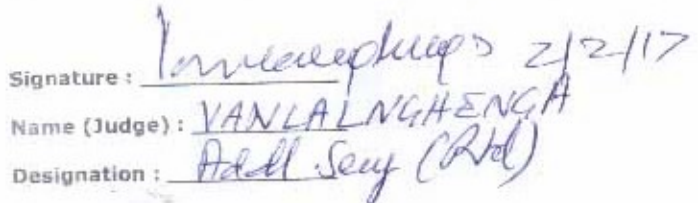 Signature : 2/2/17
Name (Judge) : VANLALNGHENGA
Designation : Addl. Secy (Rtd)